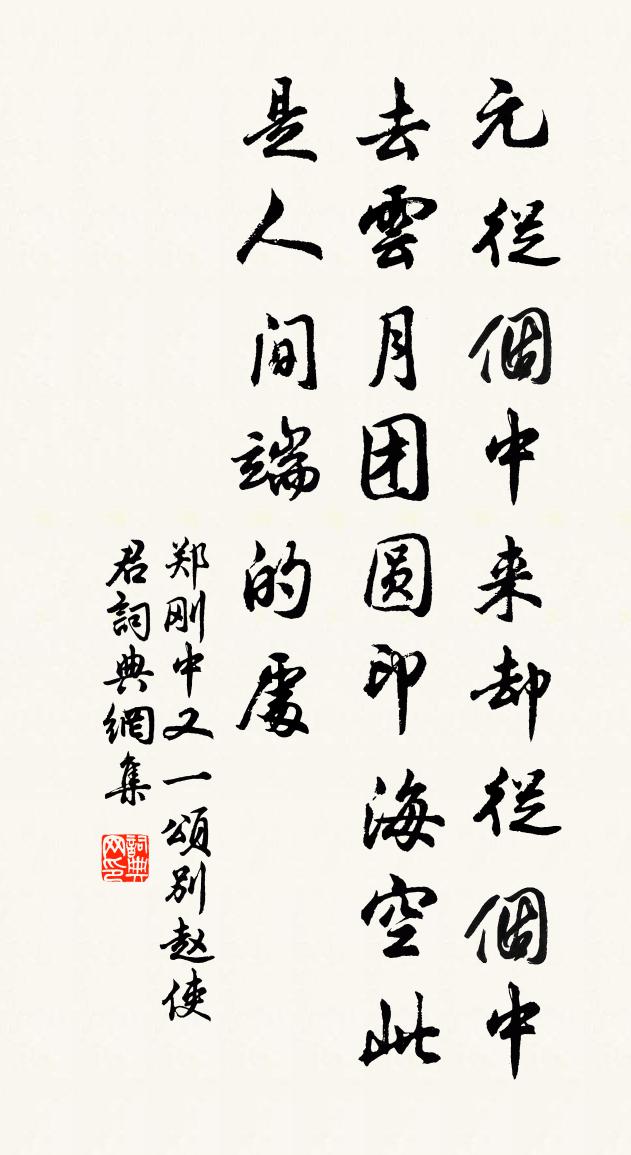 元從個中来却從個中
去雲月团圆印海空此
是人间端的處
郑刚中又一頌别赵使
君詞典網集
詞典网印